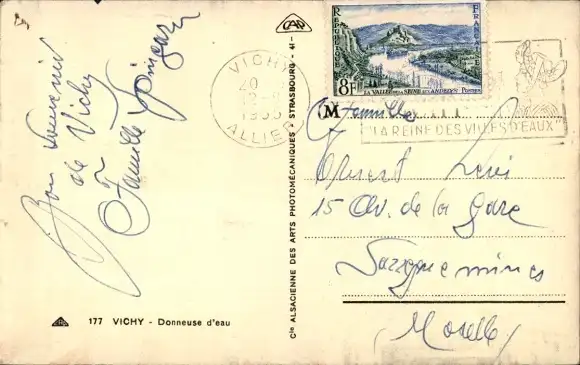 Bon souvenir
de Vichy
Famille
CAP
177 VICHY - Donneuse d'eau
Cie ALSACIENNE DES ARTS PHOTOMÉCANIQUES - STRASBOURG - 41-
VICHY
20
ALLIER
REPUBLIQUE
FRANÇAISE
8F
LA VALLÉE DE LA SEINE AUX ANDELYS
POSTES
"LA REINE DES VILLES D'EAUX"
M
Famille
Ernest Levi
15 Av. de la Gare
Sarreguemines
Moselle